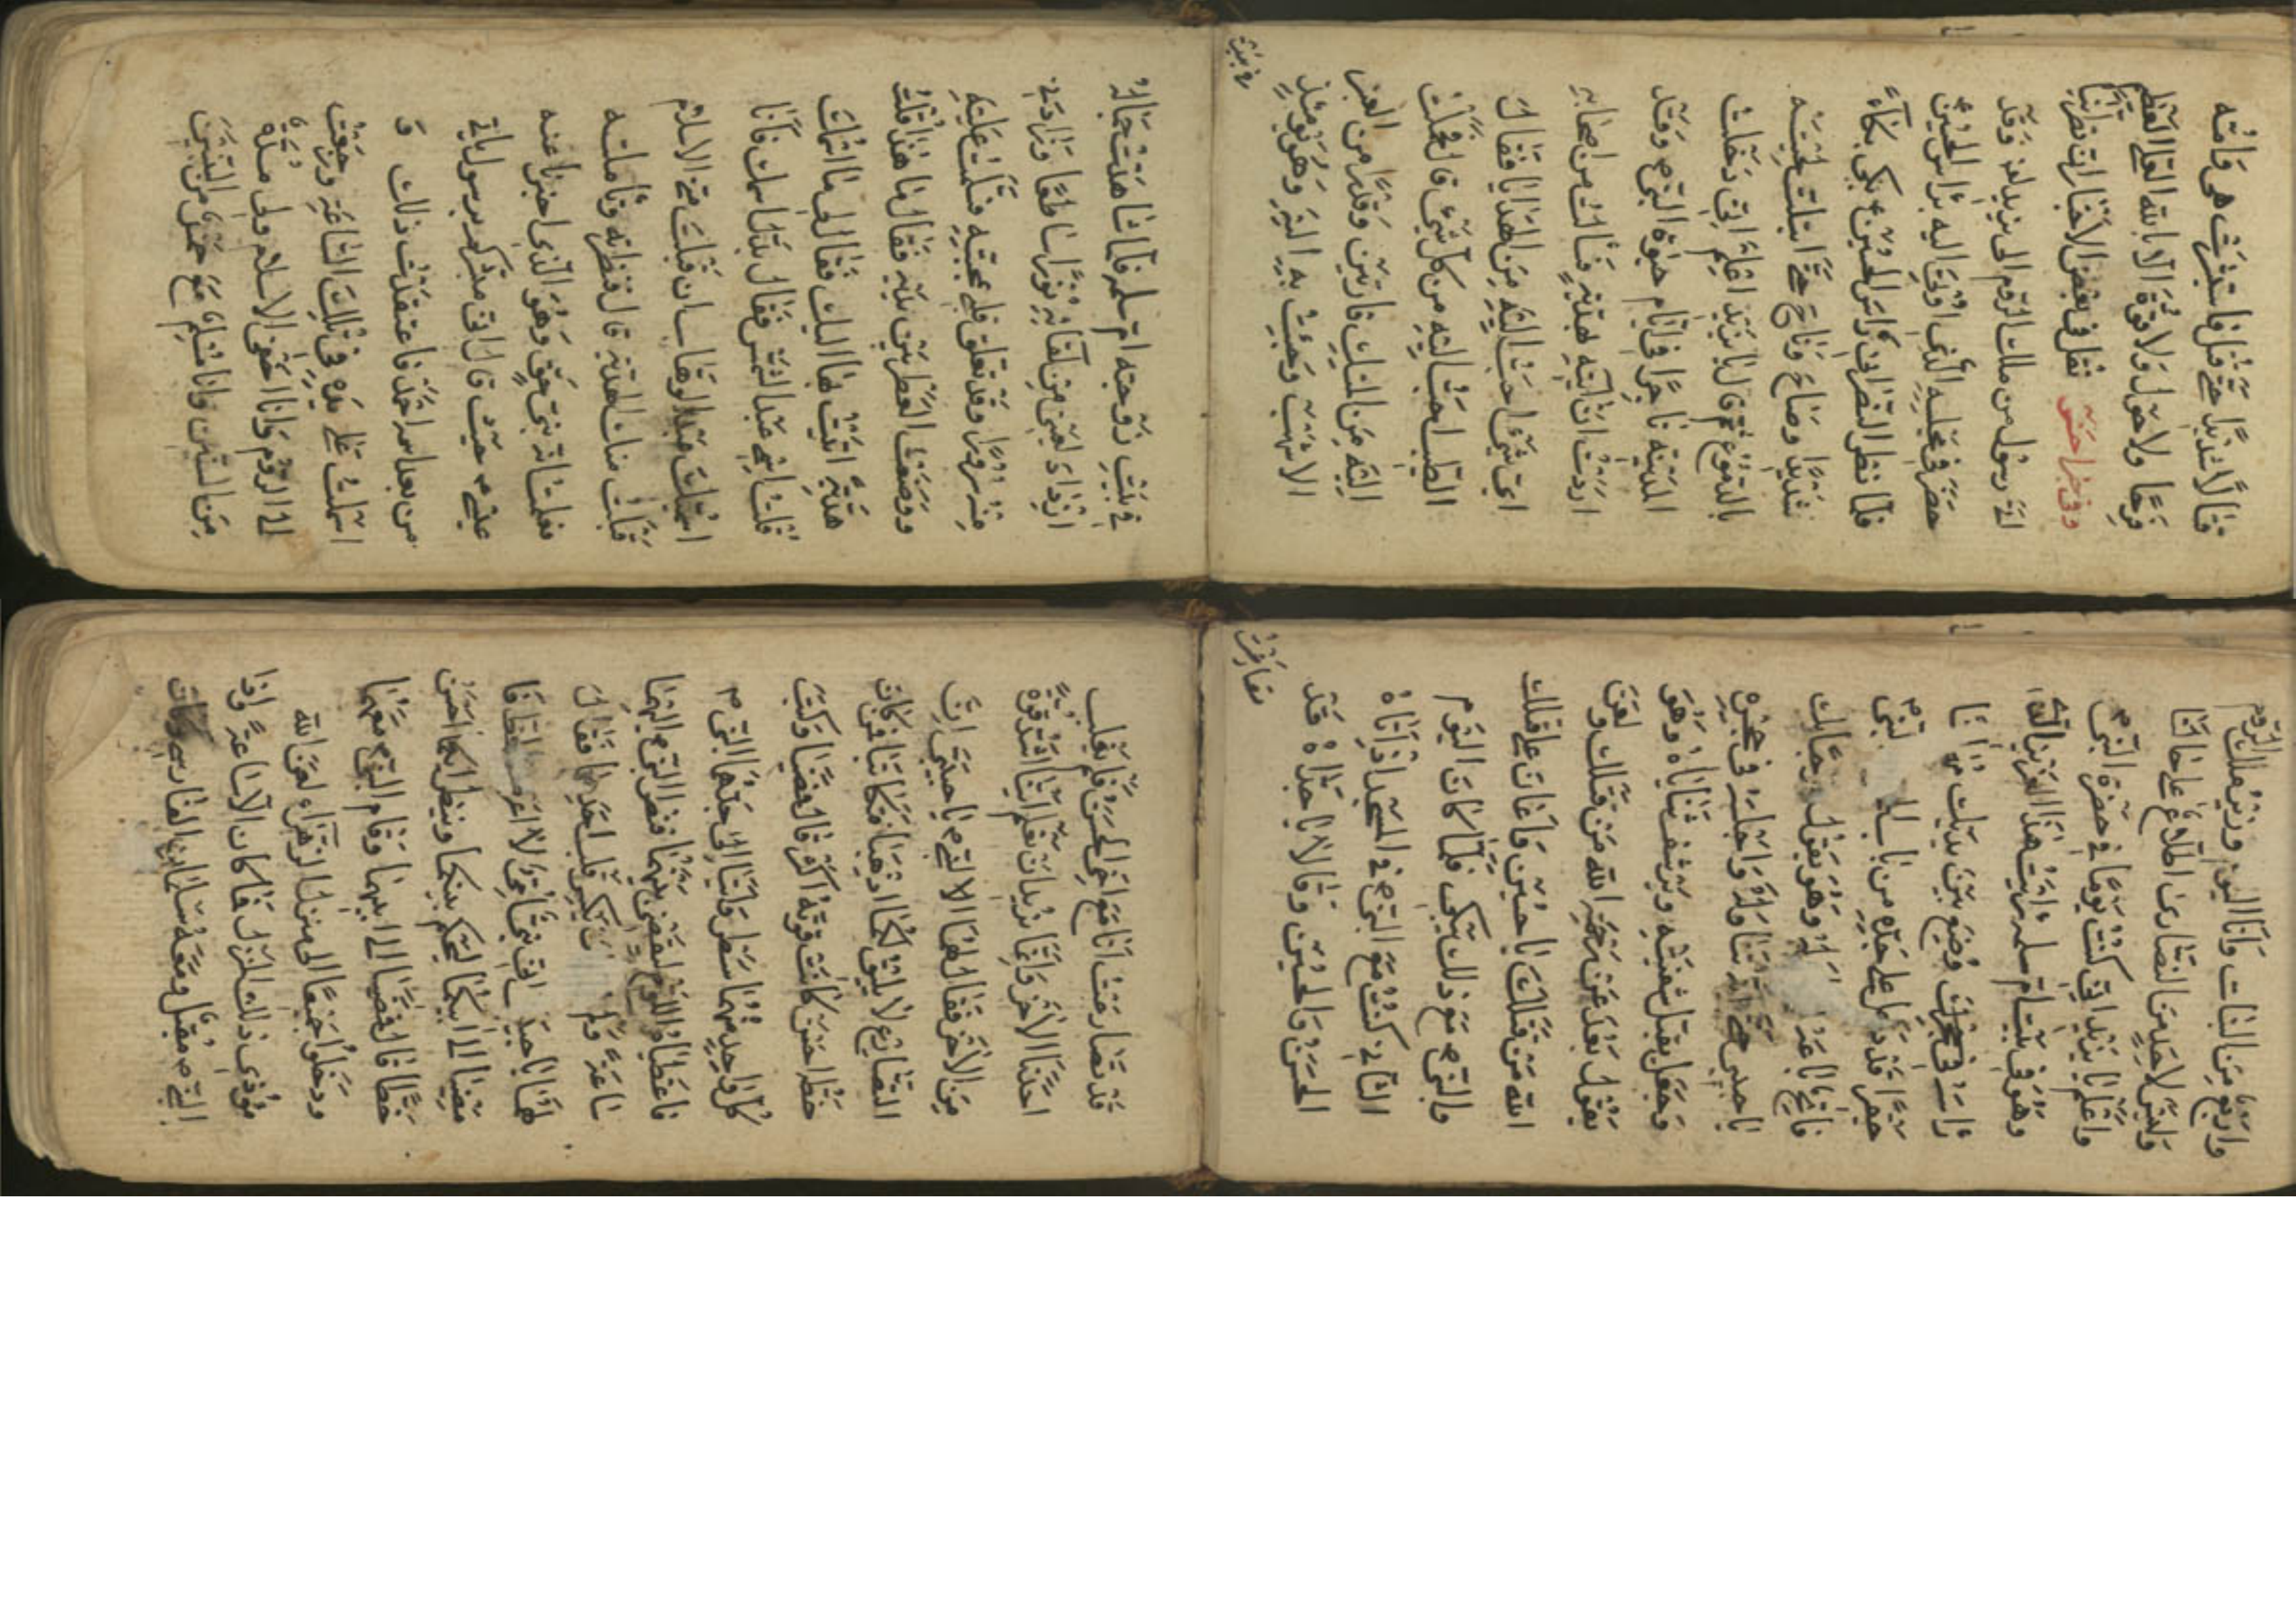 قتالا شديدا حتى قتل فاستبشرت هي وامته
فرحا ولا حول ولا قوة الا بالله العلي العظيم
وفي خبر اخر حسن نقل في بعض الاخبار ان نصرانيا
اتى رسولا من ملك الروم الى يزيد لعنه وقد
حضر في مجلسه الذي اوتي اليه براس الحسين
فلما نظر النصراني راس الحسين بكى بكاء
شديدا وصاح وناح حتى ابتلت لحيته
بالدموع ثم قال يا يزيد اعلم اني دخلت
المدينة تاجرا في ايام حيوة النبي وقد
اردت ان اتيه بهدية فسالت من اصحابه
اي شيء احب اليه من الهدايا فقال
الطيب احب اليه من كل شيء قال فحملت
اليه من المسك فارتين وقدرا من العنبر
الاشهب وجئت به اليه وهو يومئذ
في بيت
في بيت زوجته ام سلمة فلما شاهدت جماله
ازداد لعيني من لقائه نورا ساطعا وزادني
منه سرورا وقد تعلق قلبي بمحبته فسلمت عليه
ووضعت العطر بين يديه فقال ما هذا قلت
هدية اتيت بها اليك فقال لي ما اسمك
قلت اسمي عبد الشمس فقال بدل اسمك فانا
اسميك عبد الوهاب ان قبلت مني الاسلام
قبلت منك الهدية قال فنظرته وتاملته
فعلمت انه نبي حق وهو الذي اخبرنا عنه
عيسى حيث قال اني مبشركم برسول ياتي
من بعدي اسمه احمد فاعتقدت ذلك و
اسلمت على يده في تلك الساعة ورجعت
الى الروم وانا اخفي الاسلام ولي مدة
من السنين وانا مسلم مع خمس من البنين
واربع من البنات وانا اليوم وزير ملك الروم
وليس لاحد من النصارى اطلاع على حالنا
واعلم يا يزيد اني كنت يوما في حضرة النبي
وهو في بيت ام سلمة رايت هذا العزيز الذي
راسه في مجلسك وضع بين يديك
حقيرا قد دخل على جده من باب النبي
فاتح باعه وهو يقول مرحبا بك
يا حبيبي حتى انه تناوله واجلسه في حجره
وجعل يقبل شفتيه ويرشف ثناياه وهو
يقول بعد عن رحمة الله من قتلك ولعن
الله من قتلك يا حسين واعان على قتلك
والنبي مع ذلك يبكي فلما كان اليوم
الثاني كنت مع النبي في المسجد اذ اتاه
الحسن والحسين وقالا يا جداه قد
تصارعت
قد تصارعت انا مع اخي الحسن ولم يغلب
احدنا الاخر وانما نريد ان نعلم اينا اشد قوة
من الاخر فقال لهما النبي يا حبيبي ان
التصارع لا يليق لكما اذهبا فتكاتبا فمن كان
خطه احسن كانت قوته اكثر قال فمضيا وكتب
كل واحد منهما سطرا واتيا الى جدهما النبي
فاعطياه اللوح ليقضي بينهما فنظر النبي اليهما
ساعة ولم يكسر قلب احدهما فقال
لهما يا حبيبي اني نبي امي لا اعرف الخط
مضيا الى ابيكما ليحكم بينكما وينظر ايكما احسن
خطا قال فمضيا الى ابيهما وقام النبي معهما
ودخلوا جميعا الى منزل الزهراء لعن الله
موذي ذلك المنزل فما كان الا ساعة واذا
النبي مقبل ومعه سلمان الفارسي وكان